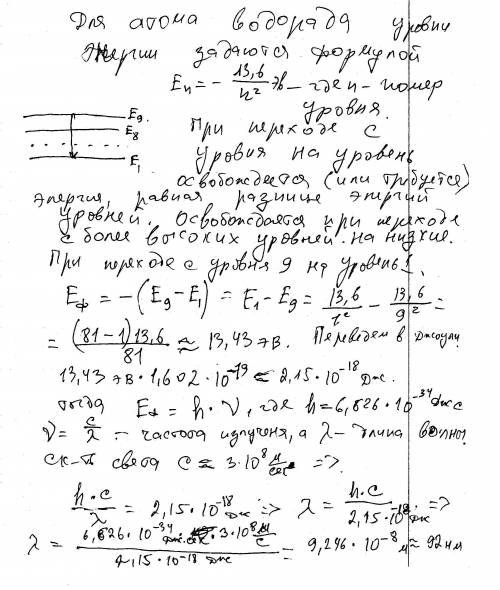 Для атома водорода уровни
энергии задаются формулой
Eₙ = - 13,6/n² эв - где n - номер
уровня.
E₉
E₈
E₁
При переходе с
уровня на уровень
освобождается (или требуется)
энергия, равная разнице энергий
уровней. Освобождается при переходе
с более высоких уровней на низкие.
При переходе с уровня 9 на уровень 1.
Eф = -(E₉ - E₁) = E₁ - E₉ = 13,6/1² - 13,6/9² =
= (81-1)13,6/81 ≈ 13,43 эв. Переведем в джоули
13,43 эв · 1,602 · 10⁻¹⁹ = 2,15 · 10⁻¹⁸ Дж.
тогда Eф = h · ν, где h = 6,626 · 10⁻³⁴ Дж с
ν = c/λ - частота излученя, а λ - длина волны
ск-ть света c ≈ 3 · 10⁸ м/сек =>.
h·c/λ = 2,15 · 10⁻¹⁸ Дж => λ = h·c/2,15·10⁻¹⁸ Дж =>
λ = 6,626 · 10⁻³⁴ Дж·с · 3·10⁸ м/с / 2,15 · 10⁻¹⁸ Дж = 9,246 · 10⁻⁸ м ≈ 92 нм